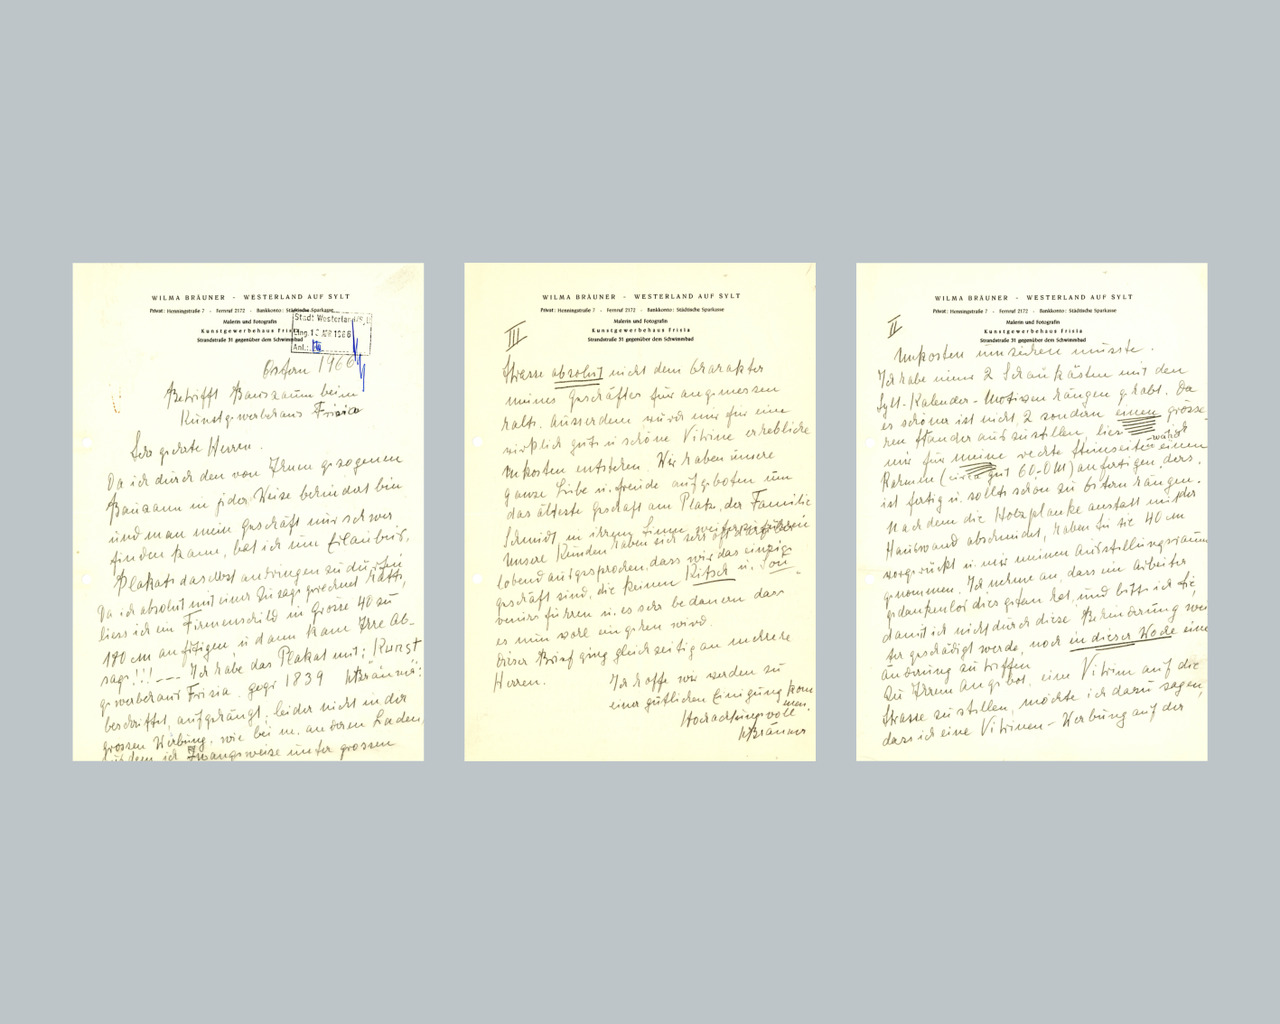 WILMA BRÄUNER - WESTERLAND AUF SYLT
Privat: Henningstraße 7 - Fernruf 2172 - Bankkonto: Städtische Sparkasse
Malerin und Fotografin
Kunstgewerbehaus Frisia
Strandstraße 31 gegenüber dem Schwimmbad
Stadt Westerland
Eing. 1 APR 1966
Anl.:
Ostern 1966
Betrifft Bauzaum beim
Kunstgewerbehaus Frisia
Sehr geehrte Herren.
Da ich durch den von Ihnen gezogenen
Bauzaun in jeder Weise behindert bin
und man mein Geschäft nur schwer
finden kann, bat ich um Erlaubnis,
Plakate daselbst anbringen zu dürfen
Da ich absolut mit einer Zusage gerechnet hatte,
liess ich ein Firmenschild in Grösse 40 zu
180 cm anfertigen, u. dann kam Ihre Ab-
sage!!! --- Ich habe das Plakat mit: Kunst
gewerbehaus Frisia. gegr 1839 WBräuner:
beschriftet, aufgehängt, leider nicht in der
grossen Werbung, wie bei m. anderen Laden,
ich Zwangsweise unter grossen
WILMA BRÄUNER - WESTERLAND AUF SYLT
Privat: Henningstraße 7 - Fernruf 2172 - Bankkonto: Städtische Sparkasse
Malerin und Fotografin
Kunstgewerbehaus Frisia
Strandstraße 31 gegenüber dem Schwimmbad
III
Strasse absolut nicht dem Charakter
meines Geschäftes für angemessen
halte. Ausserdem würde mir für eine
wirklich gute u. schöne Vitrine erhebliche
Unkosten entstehen. Wir haben unsere
ganze Liebe u. Freude aufgeboten um
das älteste Geschäft am Platz, der Familie
Schmidt in ihrem Sinne weiterzuführen
Unsere Kunden haben sich sehr oft
lobend ausgesprochen, dass wir das einzige
Geschäft sind, die keinen Kitsch u. Sou-
venirs führen u. es sehr bedauern dass
es nun wohl eingehen wird.
Dieser Brief ging gleichzeitig an mehrere
Herren.
Ich hoffe wir werden zu
einer gütlichen Einigung kom
men.
Hochachtungsvoll
WBräuner
WILMA BRÄUNER - WESTERLAND AUF SYLT
Privat: Henningstraße 7 - Fernruf 2172 - Bankkonto: Städtische Sparkasse
Malerin und Fotografin
Kunstgewerbehaus Frisia
Strandstraße 31 gegenüber dem Schwimmbad
II
Unkosten umziehen musste.
Ich habe immer 2 Schaukästen mit den
Sylt-Kalender-Motiven hängen gehabt. Da
es schöner ist nicht 2 sondern einen grösse-
ren Ständer aufzustellen, liess
mir für meine rechte Stirnseite einen
Rahmen (circa gut 60-0 M) anfertigen, ders.
ist fertig u. sollte schon zu Ostern hängen.
Nachdem die Holzplanke anstatt mit der
Hauswand abschneidet, haben Sie sie 40 cm
vorgerückt u. mir meinen Ausstellungsraum
genommen. Ich nehme an, dass ein Arbeiter
gedankenlos dies getan hat, und bitte ich Sie,
damit ich nicht durch diese Behinderung wei
ter geschädigt werde, noch in dieser Woche eine
Änderung zu treffen
Zu Ihrem Angebot, eine Vitrine auf die
Strasse zu stellen, möchte ich dazu sagen,
dass ich eine Vitrinen-Werbung auf der